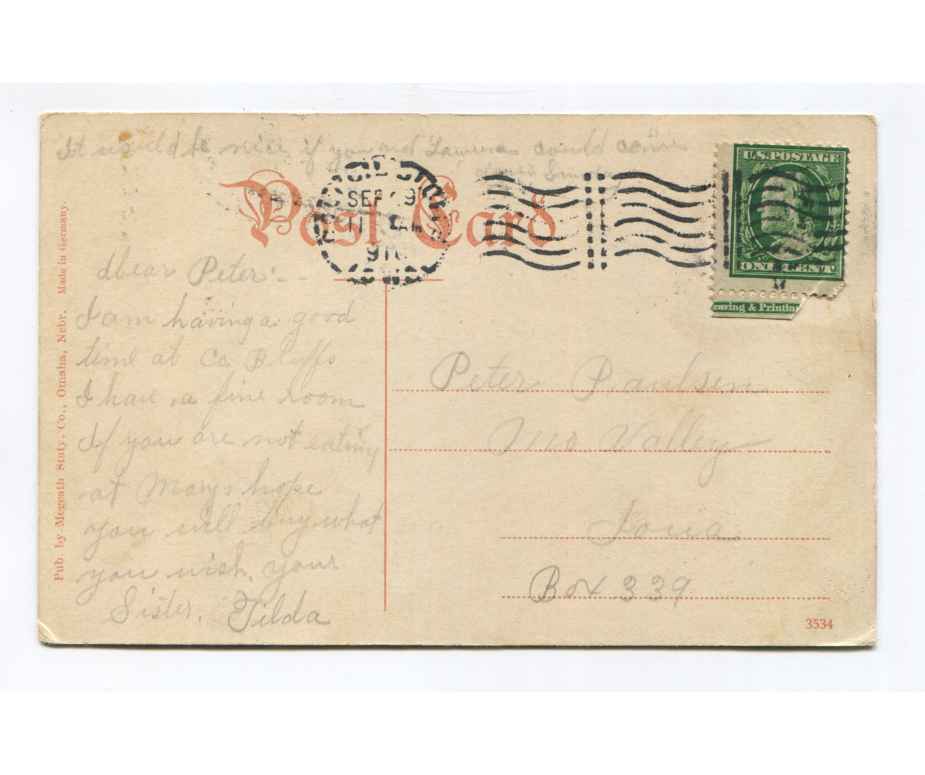 It would be nice if you and could come
Post Card
SEP 9
IOWA
U.S. POSTAGE
ONE CENT
& Printing
Dear Peter:-
I am having a good
time at Co. Bluffs
I have a fine room
If you are not eating
at Marys hope
you will buy what
you wish. your
Sister. Tilda
Peter Paulsen
Mo Valley
Iowa
Box 339
3534
Pub. by Megeath Staty. Co., Omaha, Nebr. Made in Germany.